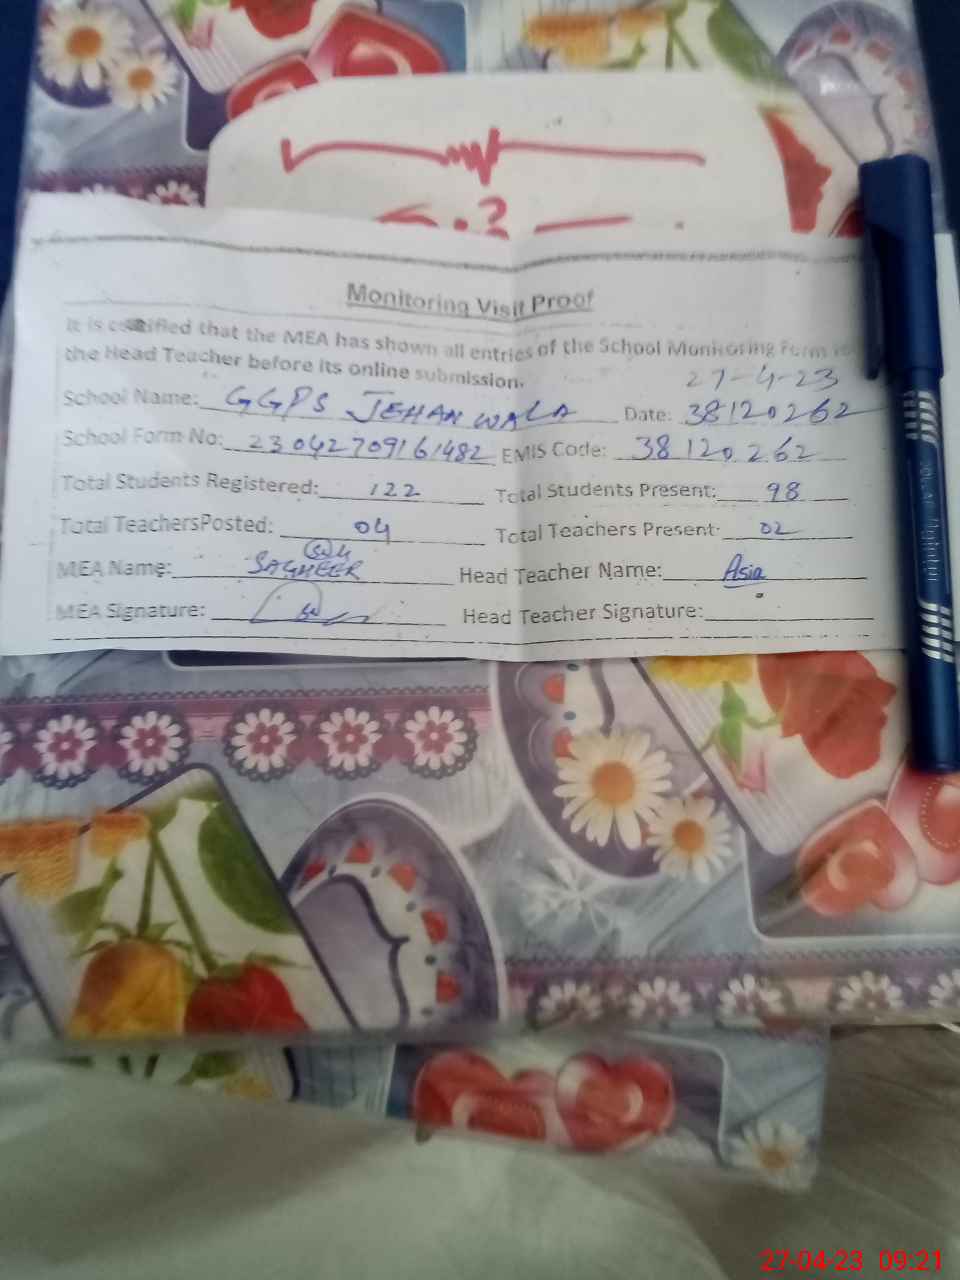 Monitoring Visit Proof
It is certified that the MEA has shown all entries of the School Monitoring Form to
the Head Teacher before its online submission.
27-4-23
School Name: GGPS JEHAN WALA Date: 38120262
School Form No: 23042709161482 EMIS Code: 38120262
Total Students Registered: 122 Total Students Present: 98
Total TeachersPosted: 04 Total Teachers Present: 02
MEA Name: SAGHEER Head Teacher Name: Asia
MEA Signature: Head Teacher Signature:
27-04-23 09:21